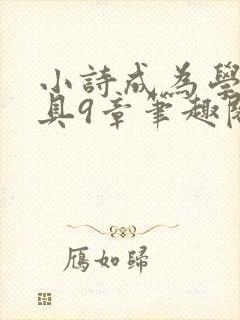 小詩成為學
具9章筆趣閣
雁如歸